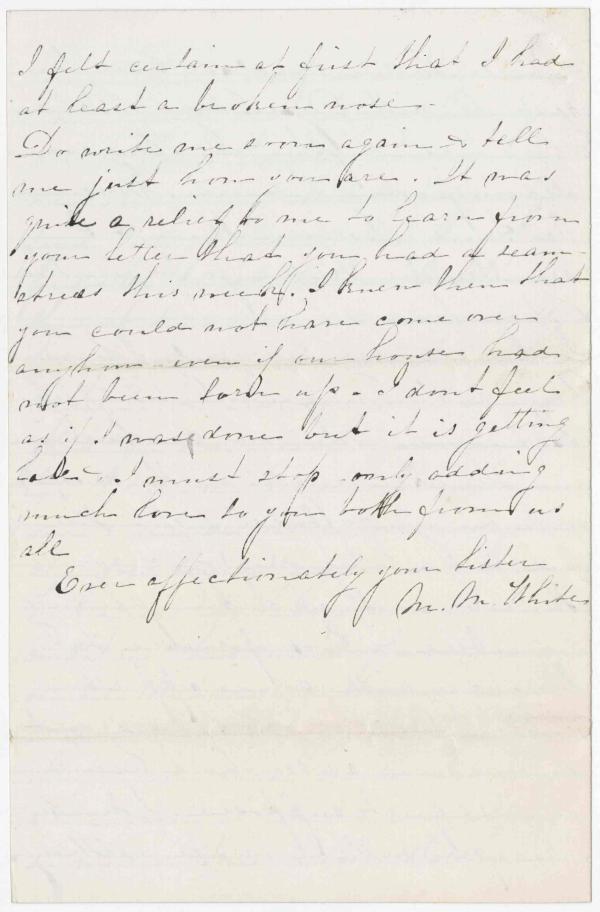 I felt certain at first that I had
at least a broken nose.
Do write me soon again & tell
me just how you are. It was
quite a relief to me to learn from
your letter that you had a seam-
stress this week. I knew then that
you could not have come over
anyhow even if our house had
not been torn up. I dont feel
as if I was done but it is getting
late. I must stop only adding
much love to you both from us
all
Ever affectionately your Sister
M. M. White